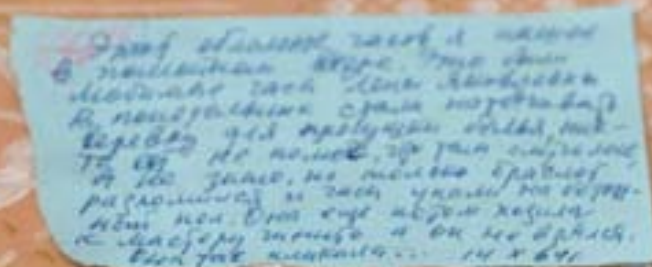 Этот обломок часов я нашла
в помойном ведре. Это были
любимые часы Лены Яковлевны
В понедельник стали натягивать
веревку для просушки белья, ник-
то не помог,
я не знаю, но только браслет
разломился и часы упали на
пол. Она еще потом ходила
к мастеру чинить а он не брался.
Она так плакала... 14 X